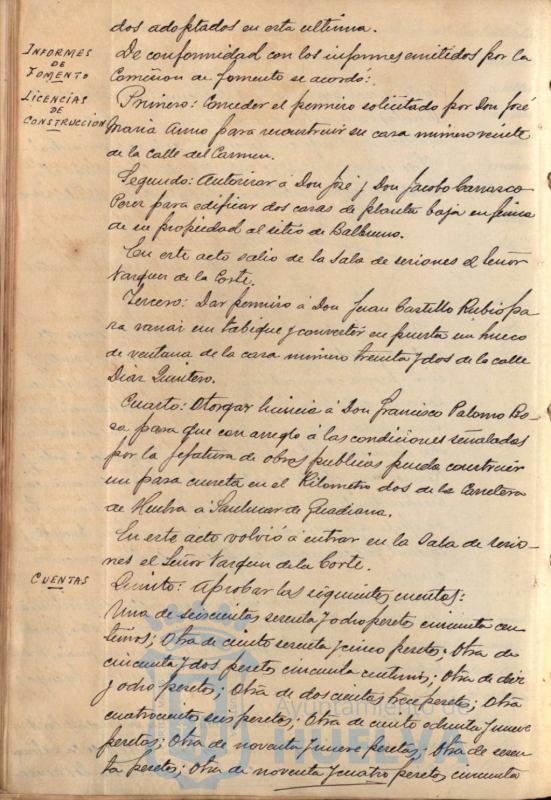 dos adoptados en esta ultima.
INFORMES
DE
FOMENTO
De conformidad con los informes emitidos por la
Comision de Fomento se acordó:
LICENCIAS
DE
CONSTRUCCION
Primero: Conceder el permiso solicitado por Don José
Maria Amo para reconstruir su casa número veinte
de la calle del Carmen.
Segundo: Autorizar á Don José y Don Jacobo Carrasco
Perez para edificar dos casas de planta baja en finca
de su propiedad al sitio de Balbueno.
En este acto salio de la Sala de sesiones el Señor
Vazquez de la Corte.
Tercero: Dar permiso á Don Juan Castillo Rubio pa
ra variar un tabique y convertir en puerta un hueco
de ventana de la casa número treinta y dos de la calle
Diaz Quintero.
Cuarto: Otorgar licencia á Don Francisco Palomo Ro
sa para que con arreglo á las condiciones señaladas
por la jefatura de obras publicas pueda construir
un pasa cuneta en el Kilometro dos de la Carretera
de Huelva á Sanlucar de Guadiana.
En este acto volvió á entrar en la Sala de sesio-
nes el Señor Vazquez de la Corte.
CUENTAS
Quinto: Aprobar las siguientes cuentas:
Una de seiscientas sesenta y ocho pesetas cincuenta cen
timos; Otra de ciento sesenta y cinco pesetas; Otra de
cincuenta y dos pesetas cincuenta centimos; Otra de diez
y ocho pesetas; Otra de doscientas tres pesetas; Otra
cuatrocientas seis pesetas; Otra de ciento ochenta y nueve
pesetas; Otra de noventa y nueve pesetas; Otra de sesen
ta pesetas; Otra de noventa y cuatro pesetas cincuenta
Ayuntamiento de
HUELVA